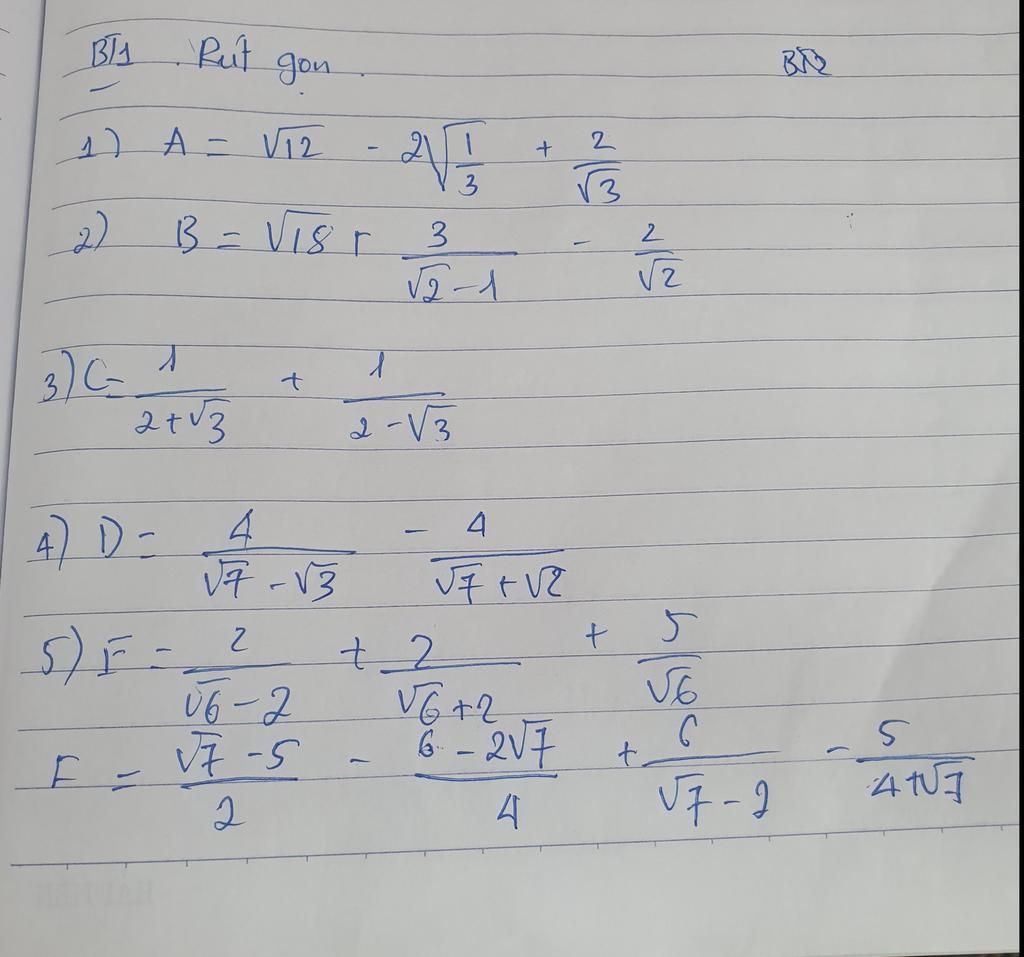 BT1. Rút gọn. BT2
1) A = √12 - 2√(1/3) + 2/√3
2) B = √18 + 3/(√2-1) - 2/√2
3) C = 1/(2+√3) + 1/(2-√3)
4) D = 4/(√7-√3) - 4/(√7+√2)
5) F = 2/(√6-2) + 2/(√6+2) + 5/√6
F = (√7-5)/2 - (6-2√7)/4 + 6/(√7-2) - 5/(4+√7)